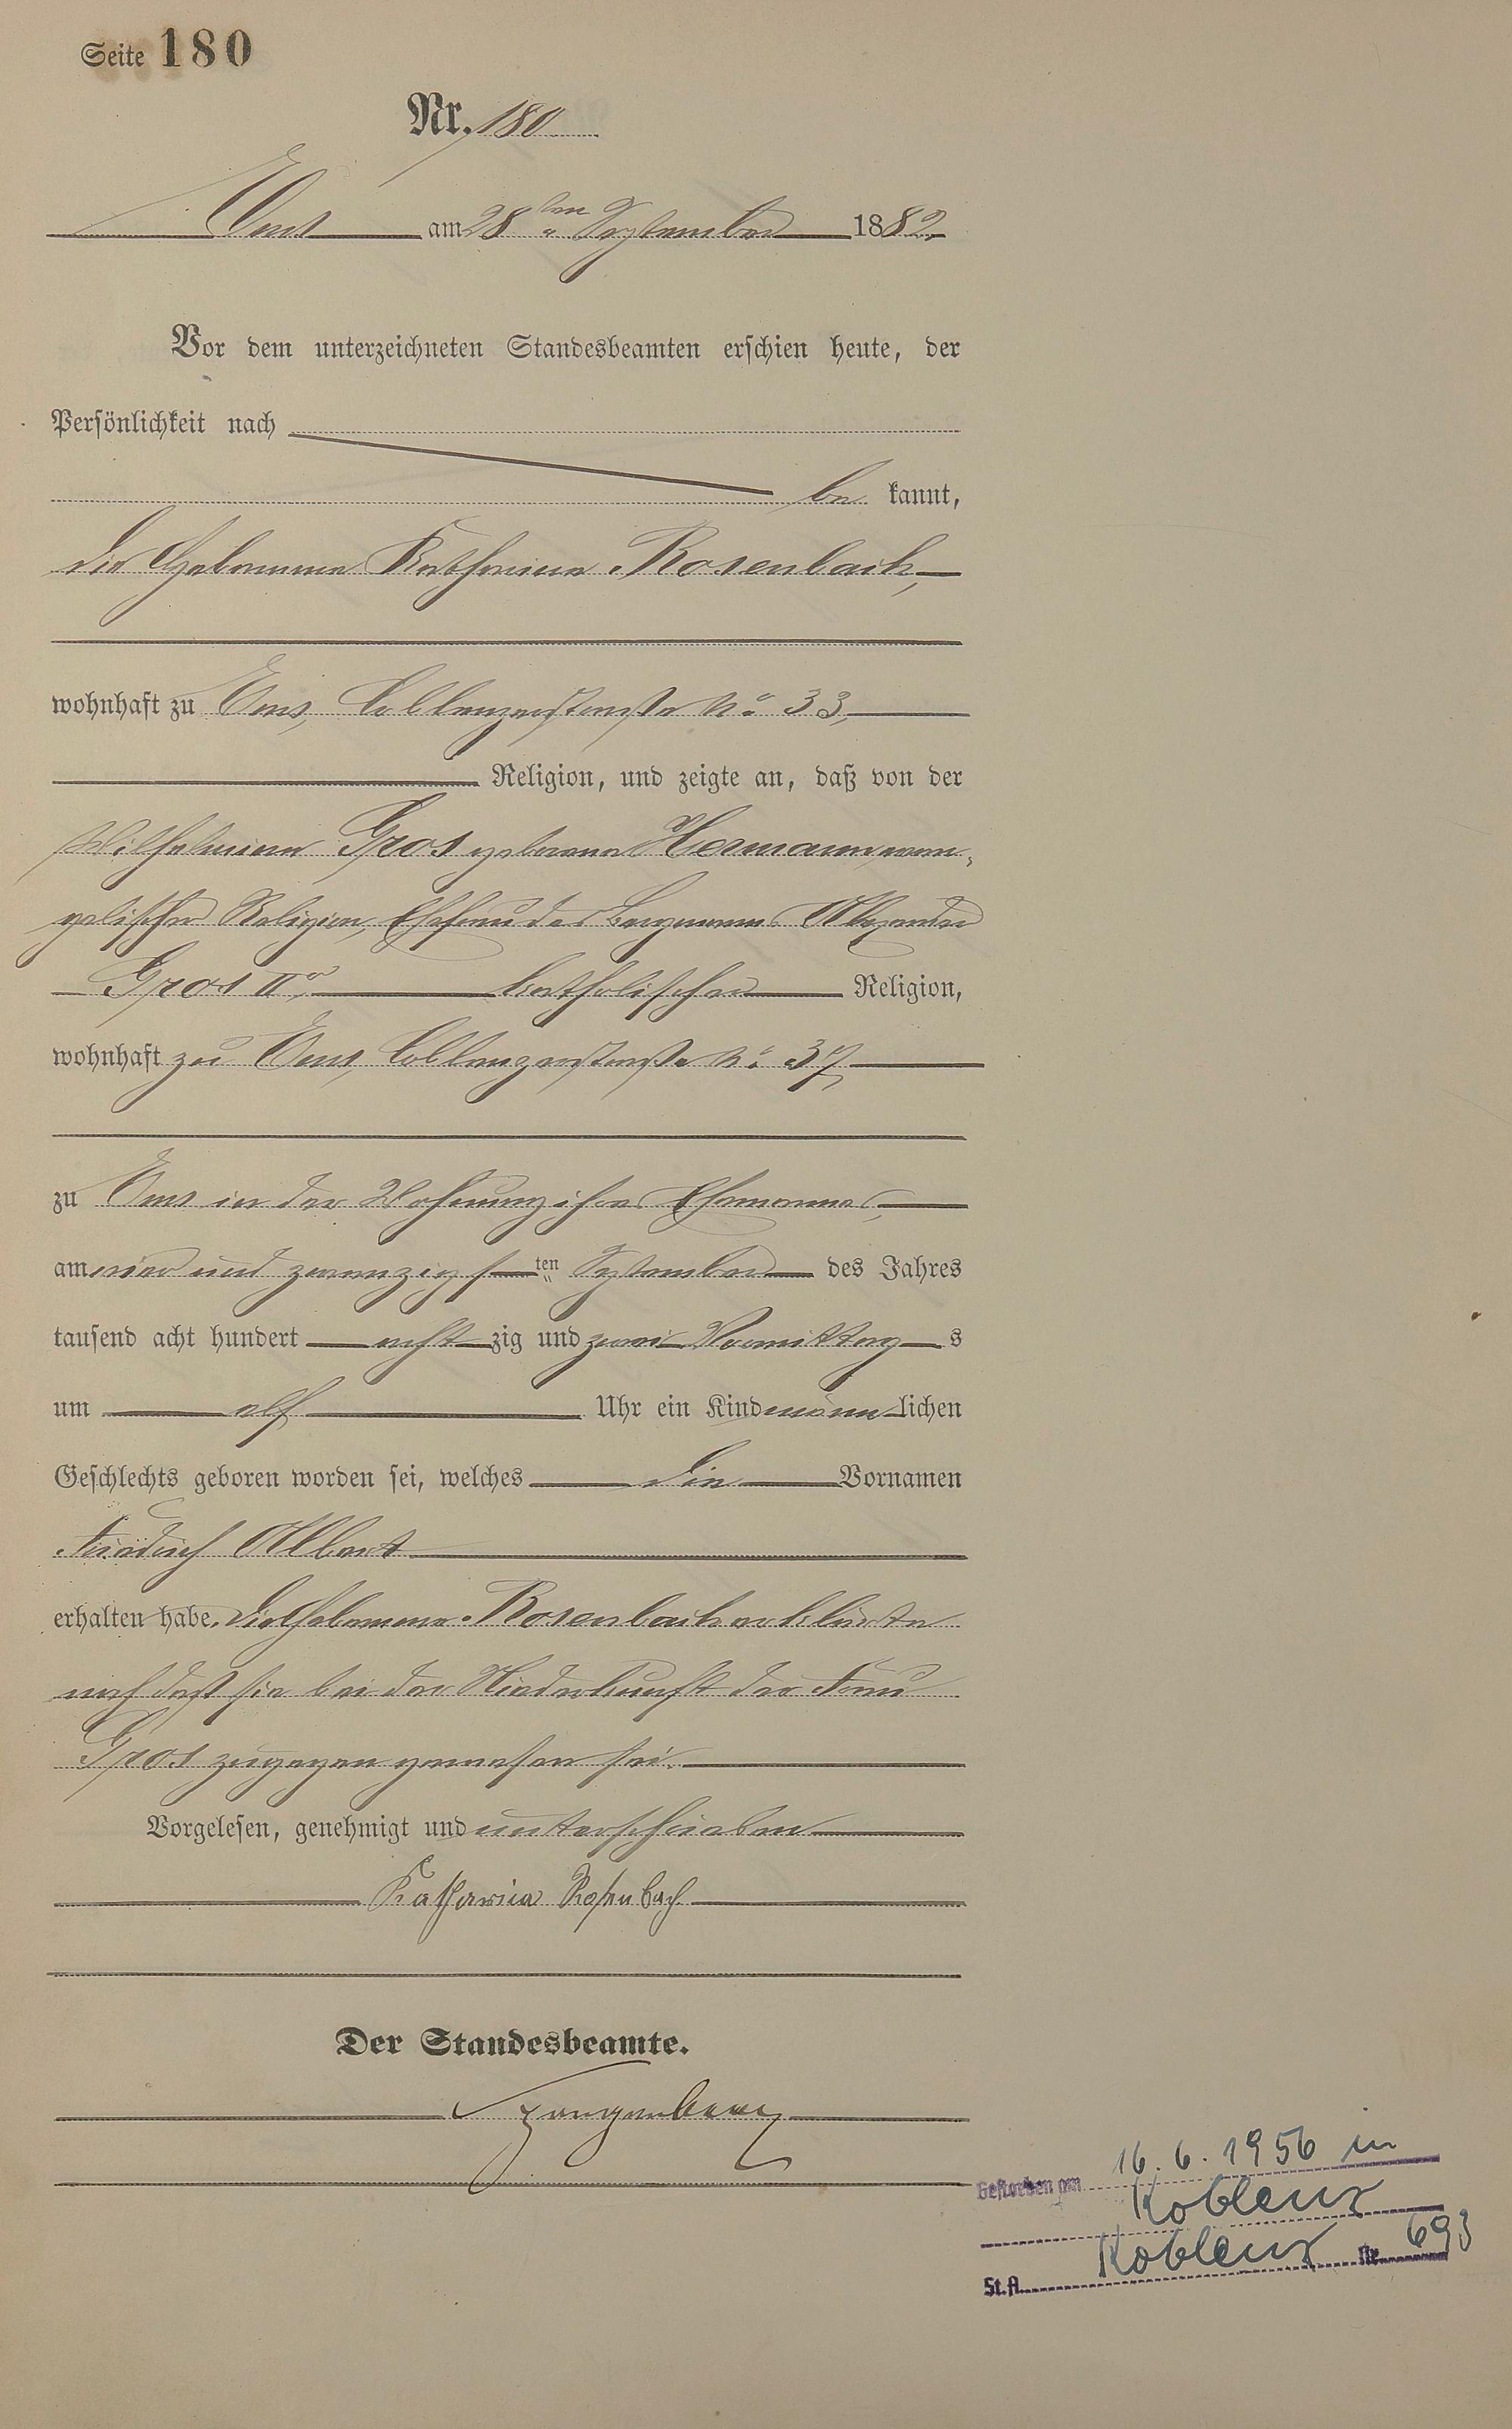 Seite 180
Nr. 180
Ems am 28ten September 1882
Vor dem unterzeichneten Standesbeamten erschien heute, der
Persönlichkeit nach
be kannt,
die Hebamme Katharina Rosenbach,
wohnhaft zu Ems, Coblenzerstraße No 33,
Religion, und zeigte an, daß von der
Wilhelmine Gros geborene Hermann, evan-
gelischer Religion, Ehefrau des Bergmanns Alexander
Gros IIr, katholischer Religion,
wohnhaft zu Ems, Coblenzerstraße No 37,
zu Ems in der Wohnung ihres Ehemannes,
am vier und zwanzigsten September des Jahres
tausend acht hundert acht zig und zwei Vormittag s
um elf Uhr ein Kind männ lichen
Geschlechts geboren worden sei, welches die Vornamen
Friedrich Albert
erhalten habe. Die Hebamme Rosenbach erklärte
noch daß sie bei der Niederkunft der Frau
Gros zugegen gewesen sei.
Vorgelesen, genehmigt und unterschrieben
Katharina Rosenbach
Der Standesbeamte.
Gestorben am 16.6.1956 in
Koblenz
St.A. Koblenz Nr. 693